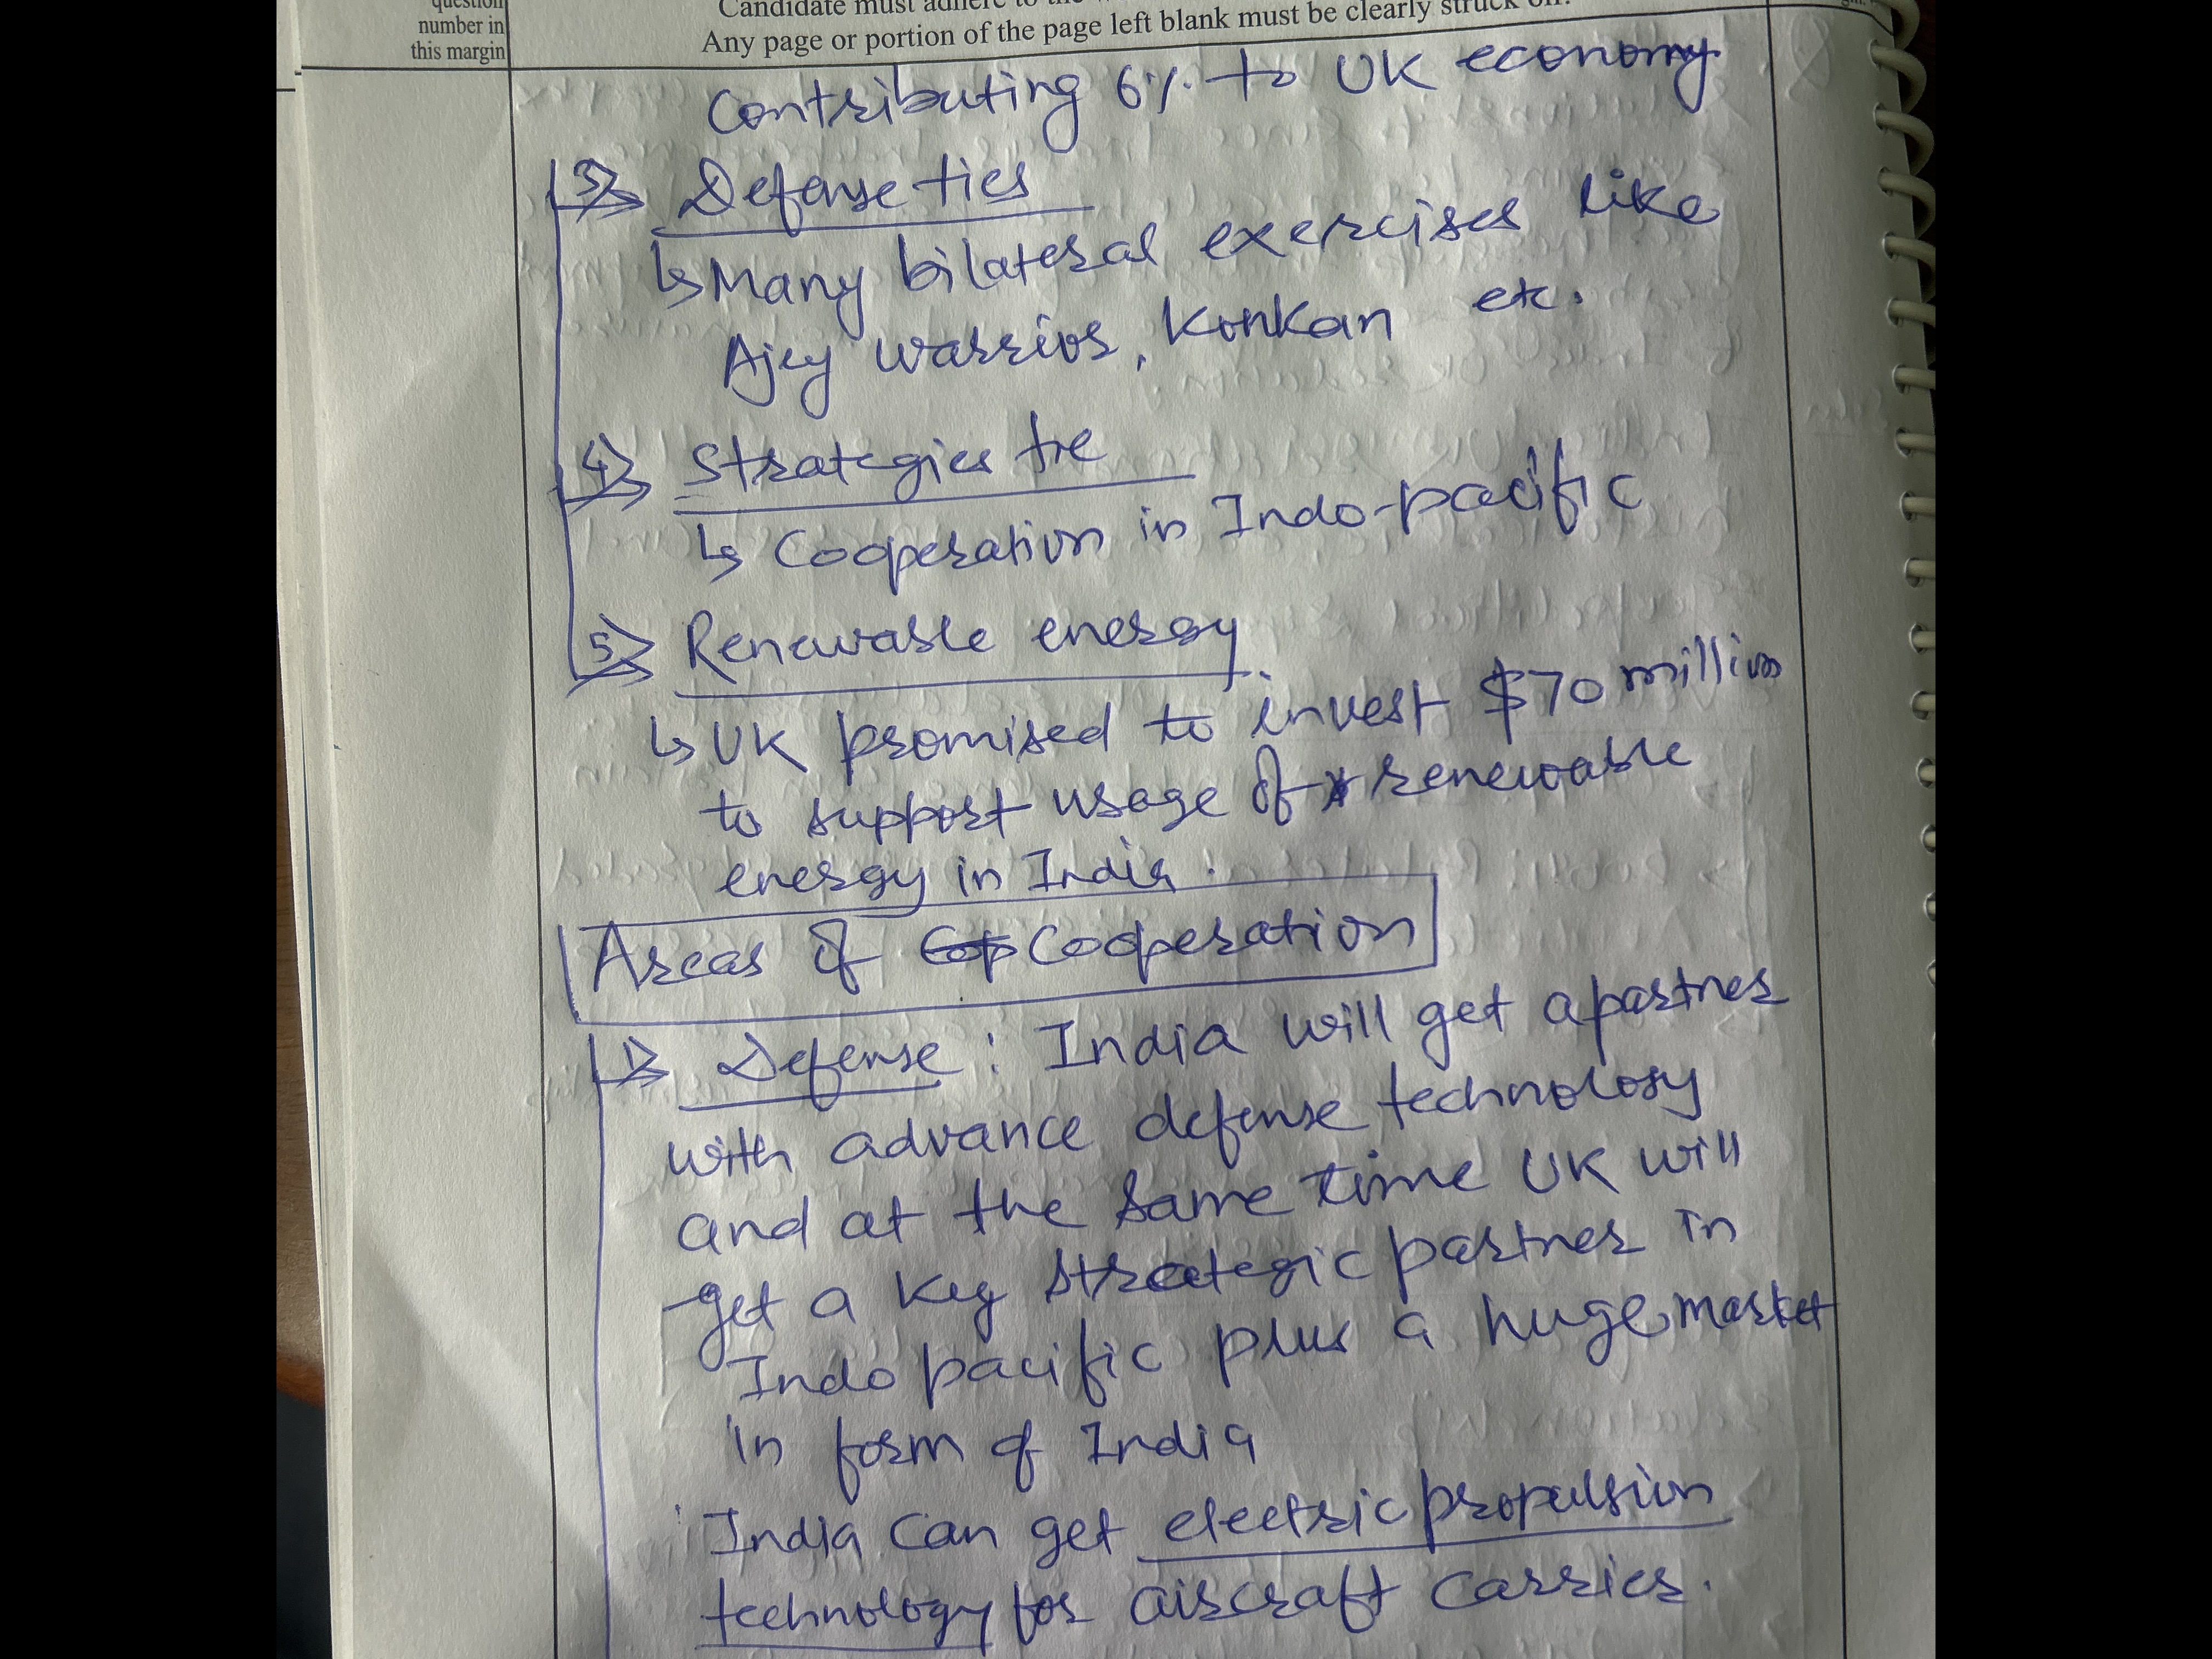 question
number in
this margin
Candidate must adhere to the
Any page or portion of the page left blank must be clearly struck off.
Contributing 6% to UK economy
3> Defense ties
↳ Many bilateral exercises like
Ajey warrior, Konkan etc.
4> Strategies tie
↳ Cooperation in Indo-pacific
5> Renewable energy
↳ UK promised to invest $70 million
to support usage of renewable
energy in India.
Areas of Cop Cooperation
1> Defense : India will get a partner
with advance defense technology
and at the same time UK will
get a key strategic partner in
Indo pacific plus a huge market
in form of India
India can get electric propulsion
technology for aircraft carrier.